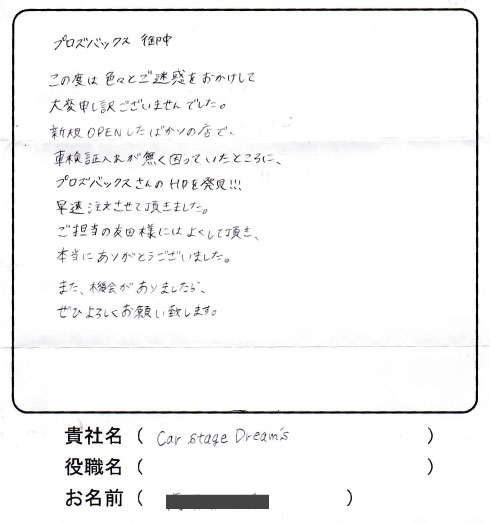 プロズバックス 御中
この度は色々とご迷惑をおかけして
大変申し訳ございませんでした。
新規OPENしたばかりの店で、
車検証入れが無く困っていたところに、
プロズバックスさんのHPを発見!!!
早速注文させて頂きました。
ご担当の友田様にはよくして頂き、
本当にありがとうございました。
また、機会がありましたら、
ぜひよろしくお願い致します。
貴社名 ( Car stage Dream's )
役職名 ( )
お名前 ( )